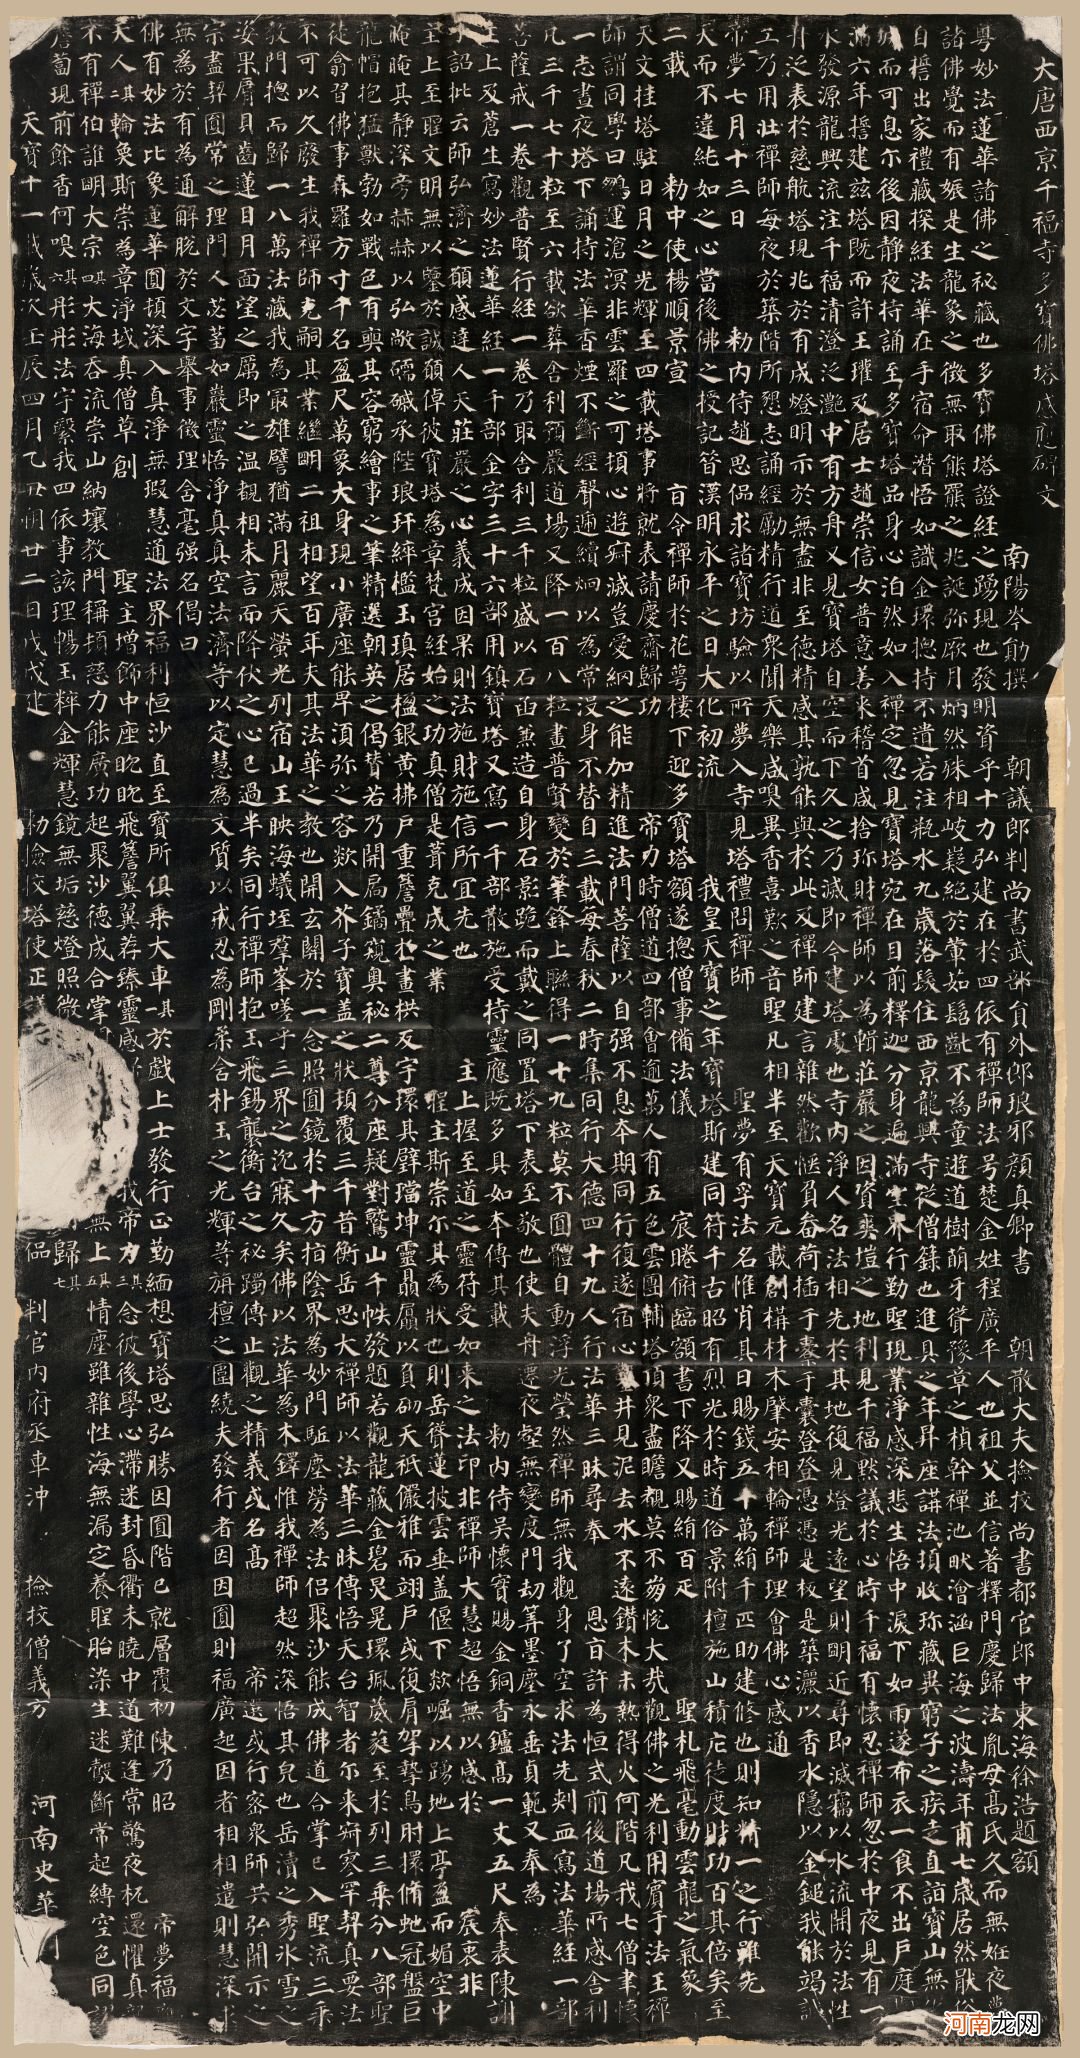 大唐西京千福寺多寶佛塔感應碑文 南陽岑勛撰 朝議郎判尚書武部員外郎琅邪顏真卿書 朝散大夫撿挍尚書都官郎中東海徐浩題額
粵妙法蓮華諸佛之祕藏也多寶佛塔證經之踴現也發明資乎十力弘建在於四依有禪師法号楚金姓程廣平人也祖父並信著釋門慶歸法胤母高氏久而無妊夜夢
諸佛覺而有娠是生龍象之徵無取熊羆之兆誕弥厥月炳然殊相岐嶷絕於葷茹髫齔不為童遊道樹萌牙聳豫章之楨幹禪池畎澮涵巨海之波濤年甫七歲居然猒俗
自誓出家禮藏探經法華在手宿命潛悟如識金環揔持不遺若注瓶水九歲落髮住西京龍興寺從僧籙也進具之年昇座講法頓收珎藏異窮子之疾走直詣寶山無化
城而可息尒後因静夜持誦至多寶塔品身心泊然如入禪㝎忽見寶塔宛在目前釋迦分身遍滿空界行勤聖現業淨感深悲生悟中淚下如雨遂布衣一食不出戶庭
滿六年誓建茲塔既而許王瓘及居士趙崇信女普意善來稽首咸捨珎財禪師以為輯莊嚴之因資爽塏之地利見千福默議於心時千福有懷忍禪師忽於中夜見有一
水發源龍興流注千福清澄泛灧中有方舟又見寶塔自空而下久之乃滅即今建塔處也寺內淨人名法相先於其地復見燈光遠望則明近尋即滅竊以水流開於法性
舟泛表於慈航塔現兆於有成燈明示於無盡非至德精感其孰能與於此及禪師建言雜然歡愜負畚荷插于橐于囊登登憑憑是板是築灑以香水隱以金鎚我能竭誠
工乃用壯禪師每夜於築階所懇志誦經勵精行道眾聞天樂咸嗅異香喜歎之音聖凡相半至天寶元載創構材木肈安相輪禪師理會佛心感通
帝夢七月十三日 勑內侍趙思偘求諸寶坊驗以所夢入寺見塔禮問禪師 聖夢有孚法名惟肖其日賜錢五十萬絹千匹助建修也則知精一之行雖先
天而不違純如之心當後佛之授記昔漢明永平之日大化初流 我皇天寶之年寶塔斯建同符千古昭有烈光於時道俗景附檀施山積庀徒度財功百其倍矣至
二載 勑中使楊順景宣 旨令禪師於花萼樓下迎多寶塔額遂揔僧事備法儀 宸睠俯臨額書下降又賜絹百疋 聖札飛毫動雲龍之氣象
天文挂塔駐日月之光輝至四載塔事將就表請慶齋歸功 帝力時僧道四部會逾萬人有五色雲團輔塔頂眾盡瞻覩莫不崩悅大哉觀佛之光利用賓于法王禪
師謂同學曰鵬運滄溟非雲羅之可頓心遊寂滅豈愛網之能加精進法門菩薩以自强不息本期同行復遂宿心鑿井見泥去水不遠鑽木未熱得火何階凡我七僧聿懷
一志晝夜塔下誦持法華香煙不斷經聲遞續炯以為常沒身不替自三載每春秋二時集同行大德四十九人行法華三昧尋奉 恩旨許為恒式前後道場所感舍利
凡三千七十粒至六載欲葬舍利預嚴道場又降一百八粒畫普賢變於筆鋒上聯得一十九粒莫不圓體自動浮光瑩然禪師無我觀身了空求法先刺血寫法華經一部
菩薩戒一卷觀普賢行經一卷乃取舍利三千粒盛以石函兼造自身石影跪而戴之同置塔下表至敬也使夫舟遷夜壑無變度門劫筭墨塵永垂貞範又奉為
主上及蒼生寫妙法蓮華經一千部金字三十六部用鎮寶塔又寫一千部散施受持靈應既多具如本傳其載 勑內侍吳懷實賜金銅香鑪高一丈五尺奉表陳謝
手詔批云師弘濟之願感達人天莊嚴之心義成因果則法施財施信所宜先也 主上握至道之靈符受如來之法印非禪師大慧超悟無以感於 宸衷非
主上至聖文明無以鑒於誠願倬彼寶塔為章梵宮經始之功真僧是葺克成之業 聖主斯崇尒其為狀也則岳聳蓮披雲垂盖偃下欻崛以踴地上亭盈而媚空中
晻晻其靜深旁赫赫以弘敞礝磩承陛琅玕綷檻玉瑱居楹銀黃拂戶重簷疊於畫栱反宇環其璧璫坤靈贔屭以負砌天祇儼雅而翊戶或復肩挐摯鳥肘擐脩虵冠盤巨
龍帽抱猛獸勃如戰色有奭其容窮繪事之筆精選朝英之偈贊若乃開扃鐍窺奧秘二尊分座疑對鷲山千帙發題若觀龍藏金碧炅晃環珮葳蕤至於列三乘分八部聖
徒翕習佛事森羅方寸千名盈尺萬象大身現小廣座能卑須弥之容欻入芥子寶盖之狀頓覆三千昔衡岳思大禪師以法華三昧傳悟天台智者尒來寂寥罕契真要法
不可以久廢生我禪師克嗣其業継明二祖相望百年夫其法華之教也開玄關於一念照圓鏡於十方指陰界為妙門駈塵勞為法侶聚沙能成佛道合掌已入聖流三乘
教門揔而歸一八萬法藏我為最雄譬猶滿月麗天螢光列宿山王映海蟻垤羣峯嗟乎三界之沉寐久矣佛以法華為木鐸惟我禪師超然深悟其皃也岳瀆之秀冰雪之
姿果脣貝齒蓮目月面望之厲即之溫覩相未言而降伏之心已過半矣同行禪師抱玉飛錫襲衡台之秘躅傳止觀之精義或名高 帝選或行密眾師共弘開示之
宗盡契圓常之理門人苾蒭如巖靈悟淨真真空法濟等以定慧為文質以戒忍為剛柔含朴玉之光輝等旃檀之圍繞夫發行者因因圓則福廣起因者相相遣則慧深求
無為於有為通解脫於文字舉事徵理含毫强名偈曰
佛有妙法比象蓮華圓頓深入真淨無瑕慧通法界福利恒沙直至寶所俱乘大車其一於戲上士發行正勤緬想寶塔思弘勝因圓階已就層覆初陳乃昭 帝夢福
天人其二輪奐斯崇為章淨域真僧草創 聖主增飾中座眈眈飛簷翼翼荐臻靈感 我帝力其三念彼後學心滯迷封昏衢未曉中道難逢常驚夜杌還懼真
不有禪伯誰明大宗其四大海吞流崇山納壤教門稱頓慈力能廣功起聚沙德成合掌 無上其五情塵雖雜性海無漏定養聖胎染生迷鷇斷常起縛空色同謬
薝蔔現前餘香何嗅其六彤彤法宇繄我四依事該理暢玉粹金輝慧鏡無垢慈燈照微 歸其七
天寶十一載歲次壬辰四月乙丑朔廿二日戊戌建 勑撿挍塔使正 偘 判官內府丞車冲 撿挍僧義方 河南史華
河南龙网